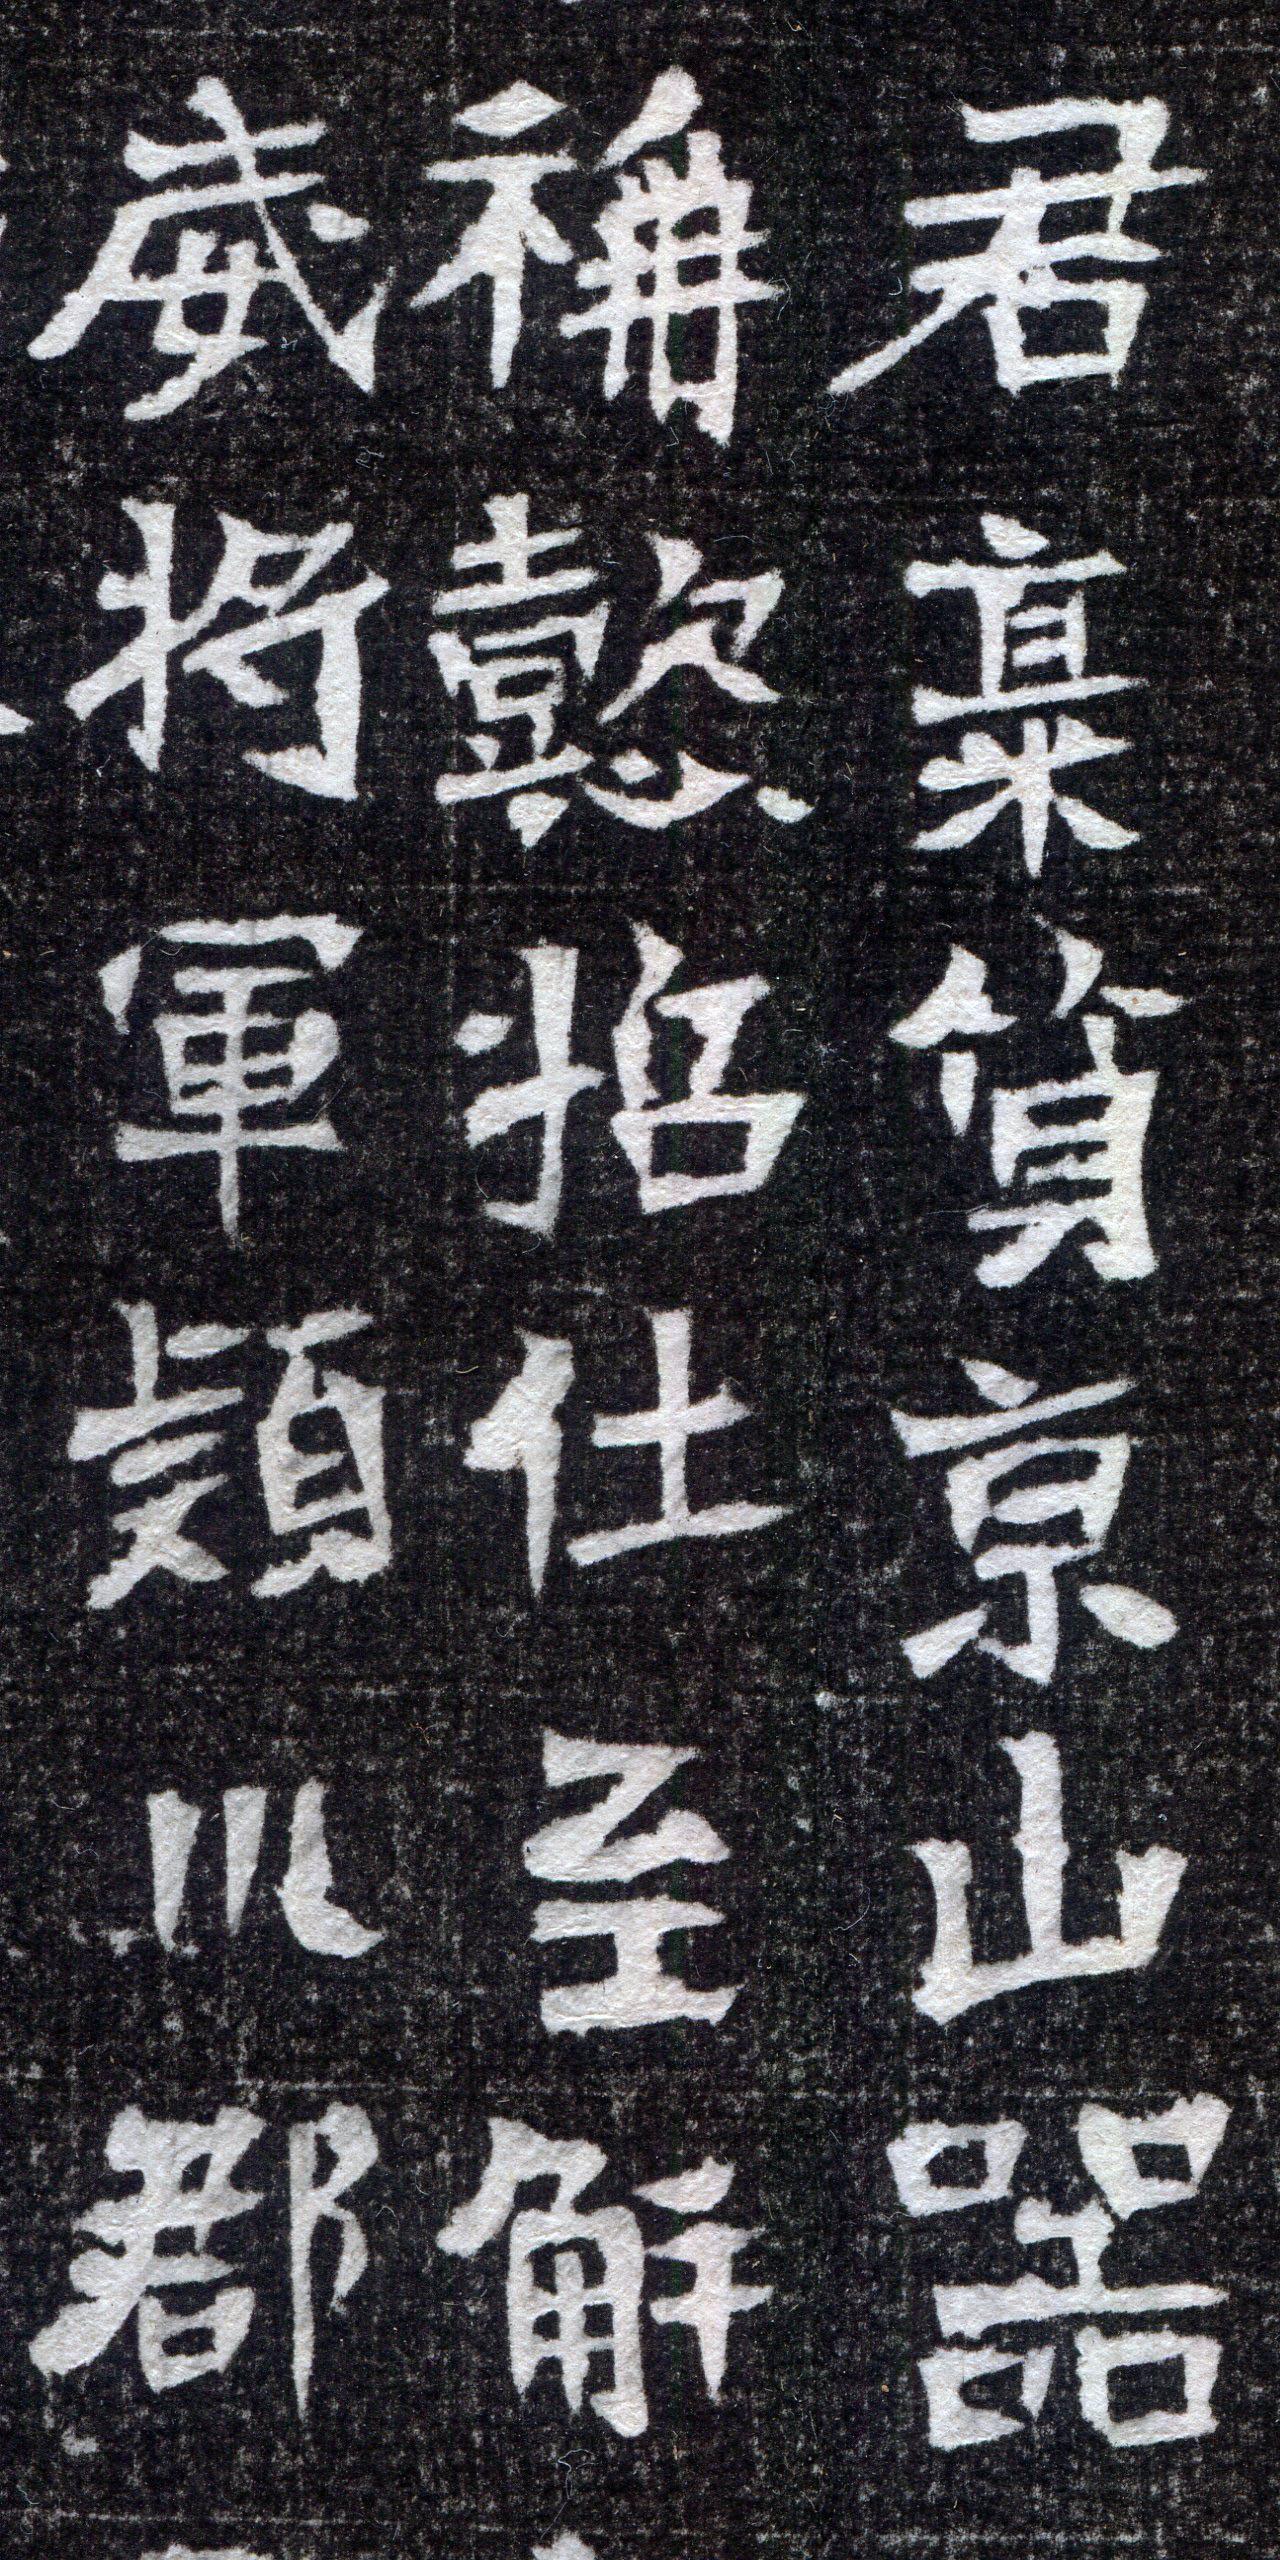 君稟資京山器
稱懿招仕至解
威將軍潁川都